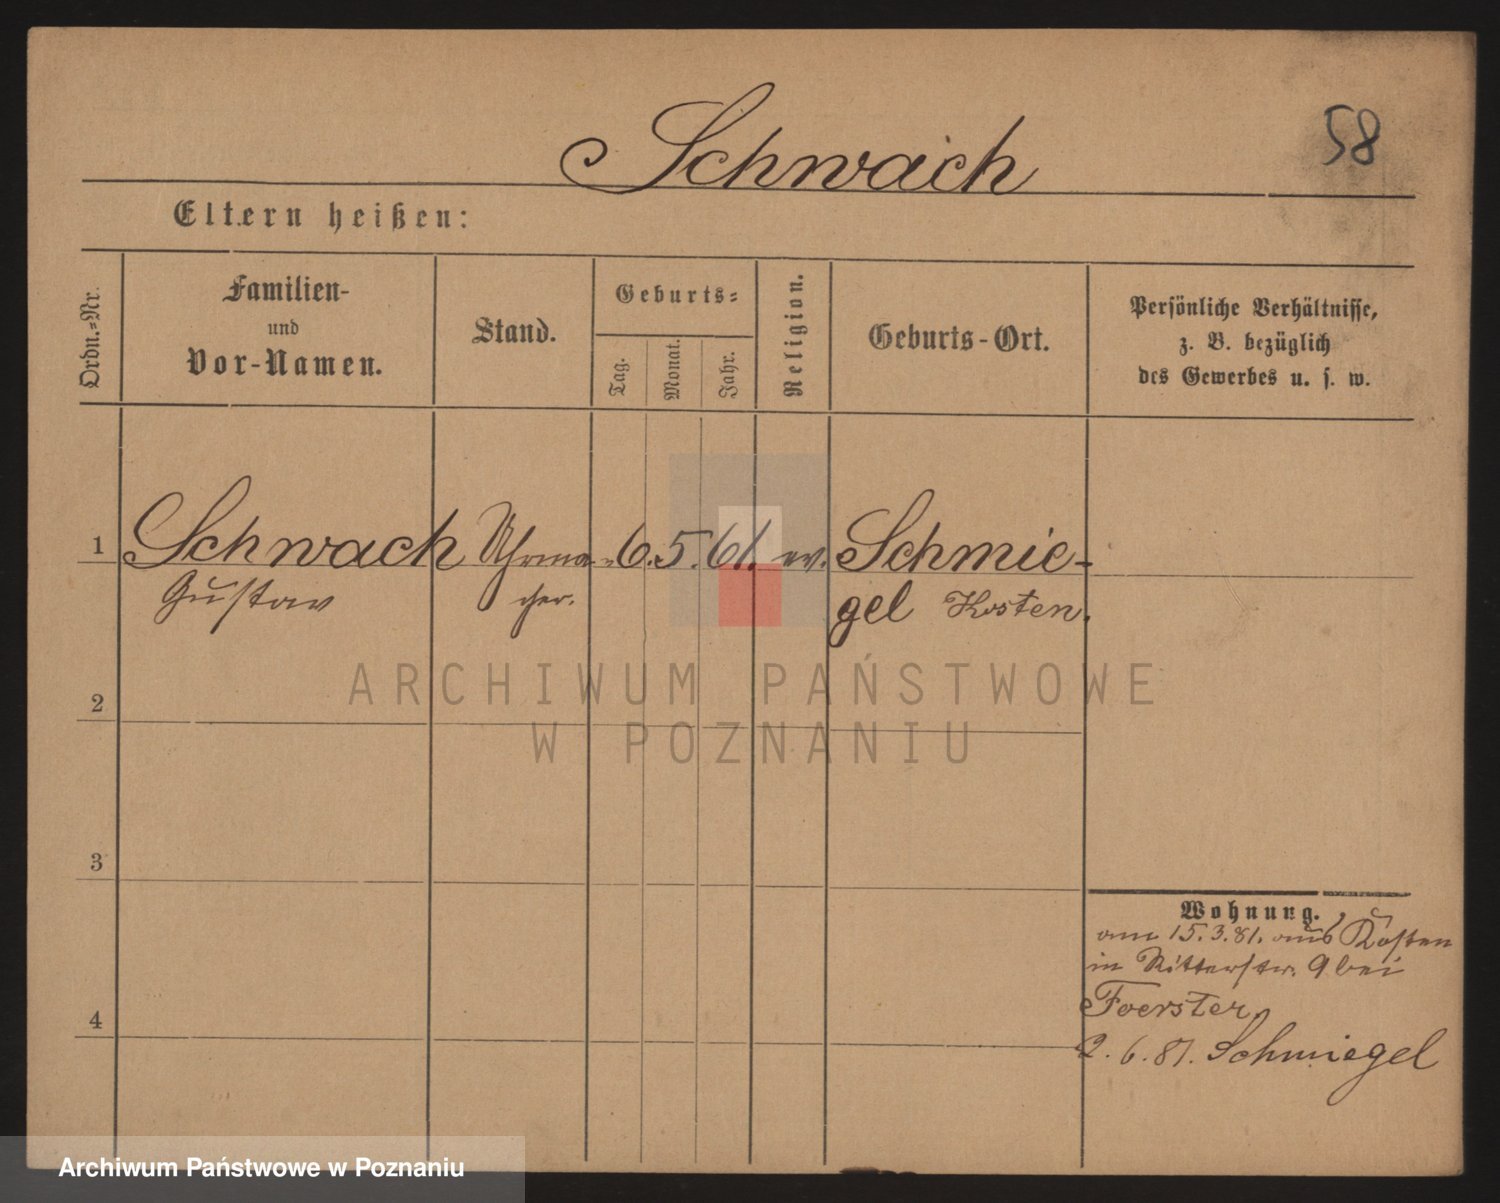 Schwach
58
Eltern heißen:
Ordn.=Nr.
Familien-
und
Vor-Namen.
Stand.
Geburts=
Tag.
Monat.
Jahr.
Religion.
Geburts-Ort.
Persönliche Verhältnisse,
z. B. bezüglich
des Gewerbes u. s. w.
1 Schwach Uhrma- 6. 5. 61. ev. Schmie-
Gustav cher. gel Kosten.
ARCHIWUM PAŃSTWOWE
W POZNANIU
2
3
Wohnung.
am 15.3.81. aus Kosten
in Ritterstr. 9 bei
Foerster
4
2. 6. 81. Schmiegel
Archiwum Państwowe w Poznaniu